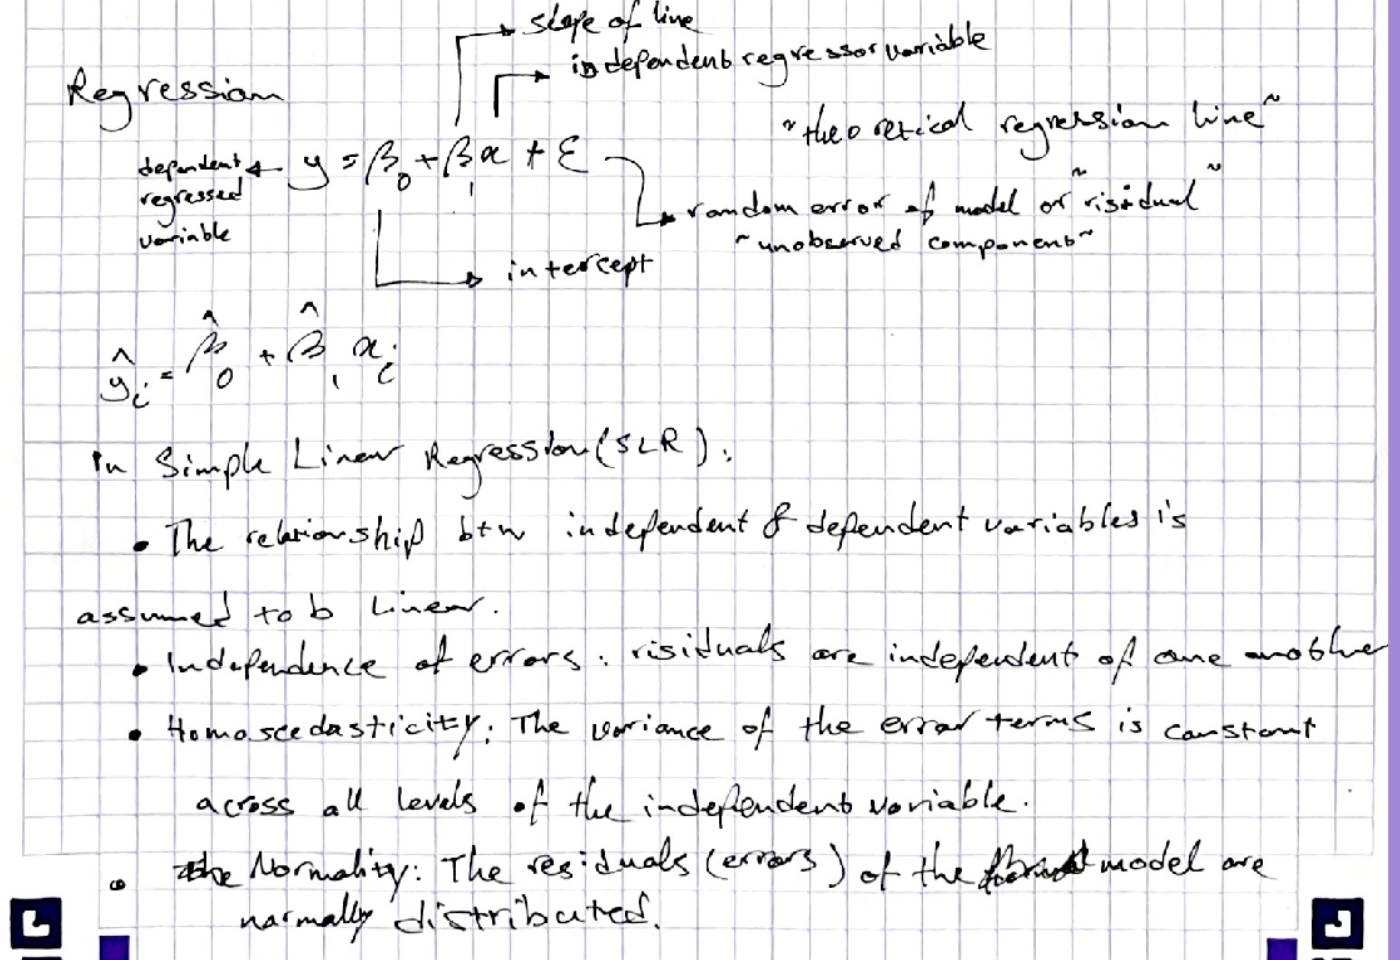 slope of line
independent regressor variable
Regression
"theoretical regression line"
y = β₀ + β₁x + ε
dependent
regressed
variable
random error of model or "risidual"
"unobserved component"
intercept
ŷᵢ = β̂₀ + β̂₁ xᵢ
In Simple Linear Regression (SLR):
• The relationship btw independent & dependent variables is
assumed to b Linear.
• Independence of errors: risiduals are independent of one another
• Homoscedasticity: The variance of the error terms is constant
across all levels of the independent variable.
• Normality: The residuals (errors) of the model are
normally distributed.